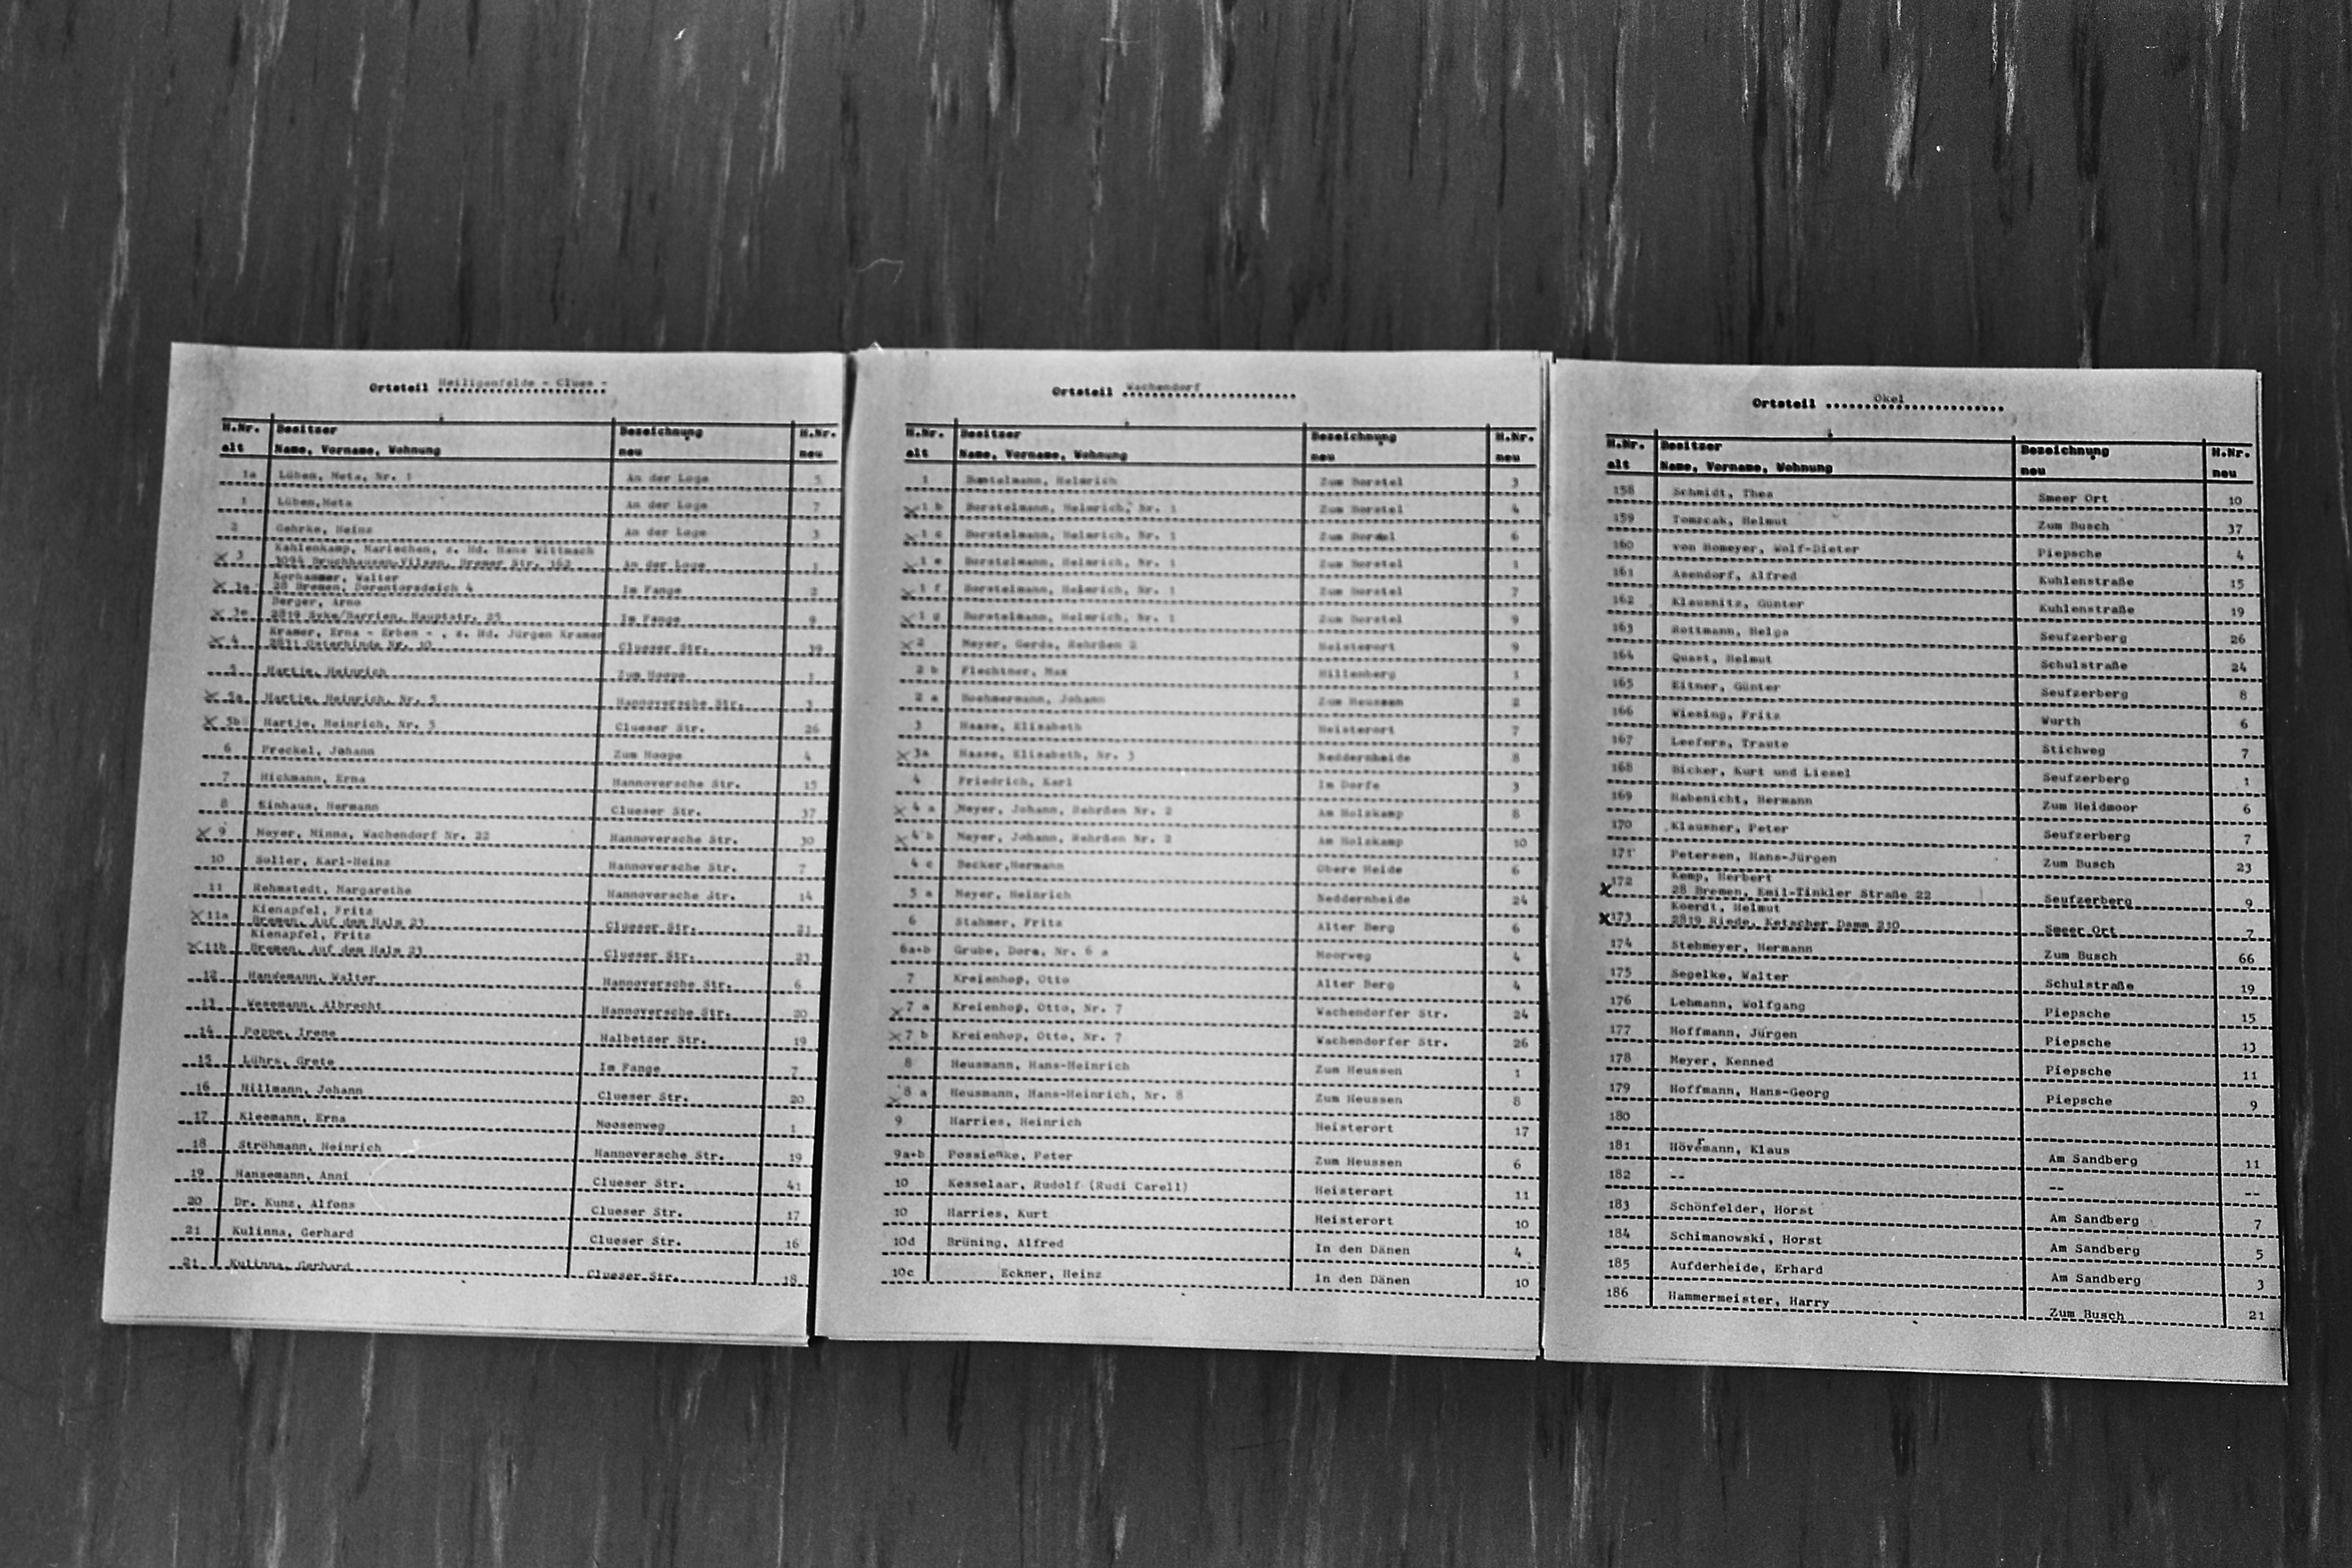 Ortsteil Heiligenfelde - Clues -
H.Nr. Besitzer Bezeichnung H.Nr.
alt Name, Vorname, Wohnung neu neu
1a Lüben, Meta, Nr. 1 An der Loge 5
1 Lüben,Meta An der Loge 7
2 Gehrke, Heinz An der Loge 3
x 3 Kahlenkamp, Mariechen, z. Hd. Hans Wittmach
3094 Bruchhausen-Vilsen, Bremer Str. 162 An der Loge 1
x Korhammer, Walter
28 Bremen, Dorentorsdeich 4 Im Fange 2
x 3e Berger, Arno
2819 Syke/Barrien, Hauptstr. 25 Im Fange 9
x 4 Kramer, Erna - Erben - , z. Hd. Jürgen Kramer
2811 Osterbinde Nr. 10 Clueser Str. 39
5 Hartje, Heinrich Zum Hoope 1
x 5a Hartje, Heinrich, Nr. 5 Hannoversche Str. 3
x 5b Hartje, Heinrich, Nr. 5 Clueser Str. 26
6 Freckel, Johann Zum Hoope 4
7 Hickmann, Erna Hannoversche Str. 15
8 Einhaus, Hermann Clueser Str. 37
x 9 Meyer, Minna, Wachendorf Nr. 22 Hannoversche Str. 30
10 Soller, Karl-Heinz Hannoversche Str. 7
11 Rehmstedt, Margarethe Hannoversche Str. 14
x 11a Kienapfel, Fritz
Bremen, Auf dem Halm 23 Clueser Str. 21
x 11b Kienapfel, Fritz
Bremen, Auf dem Halm 23 Clueser Str. 23
12 Hansemann, Walter Hannoversche Str. 6
13 Wesemann, Albrecht Hannoversche Str. 20
14 Poppe, Irene Halbetzer Str. 19
15 Lührs, Grete Im Fange 7
16 Hillmann, Johann Clueser Str. 20
17 Kleemann, Erna Moosenweg 1
18 Ströhmann, Heinrich Hannoversche Str. 19
19 Hansemann, Anni Clueser Str. 41
20 Dr. Kunz, Alfons Clueser Str. 17
21 Kulinna, Gerhard Clueser Str. 16
21 Kulinna, Gerhard Clueser Str. 18
Ortsteil Wachendorf
H.Nr. Besitzer Bezeichnung H.Nr.
alt Name, Vorname, Wohnung neu neu
1 Heinrich Zum Borstel 3
x 1 b Borstelmann, Heinrich, Nr. 1 Zum Borstel 4
x 1 c Borstelmann, Heinrich, Nr. 1 Zum Borstel 6
x 1 e Borstelmann, Heinrich, Nr. 1 Zum Borstel 1
x 1 f Borstelmann, Heinrich, Nr. 1 Zum Borstel 7
x 1 g Borstelmann, Heinrich, Nr. 1 Zum Borstel 9
x 2 Meyer, Gerda, Rehrßen 2 Heisterort 9
2 b Flechtner, Max Hillenberg 1
2 a Boehmermann, Johann Zum Heussen 2
3 Haase, Elisabeth Heisterort 7
x 3a Haase, Elisabeth, Nr. 3 Neddernheide 8
4 Friedrich, Karl Im Dorfe 3
x 4 a Meyer, Johann, Rehrßen Nr. 2 Am Holzkamp 8
x 4 b Meyer, Johann, Rehrßen Nr. 2 Am Holzkamp 10
4 c Becker,Hermann Obere Heide 6
5 a Meyer, Heinrich Neddernheide 24
6 Stahmer, Fritz Alter Berg 6
6a+b Grube, Dora, Nr. 6 a Moorweg 4
7 Kreienhop, Otto Alter Berg 4
x 7 a Kreienhop, Otto, Nr. 7 Wachendorfer Str. 24
x 7 b Kreienhop, Otto, Nr. 7 Wachendorfer Str. 26
8 Heusmann, Hans-Heinrich Zum Heussen 1
x 8 a Heusmann, Hans-Heinrich, Nr. 8 Zum Heussen 8
9 Harries, Heinrich Heisterort 17
9a+b Possienke, Peter Zum Heussen 6
10 Kesselaar, Rudolf (Rudi Carell) Heisterort 11
10 Harries, Kurt Heisterort 10
10d Brüning, Alfred In den Dänen 4
10c Eckner, Heinz In den Dänen 10
Ortsteil Okel
H.Nr. Besitzer Bezeichnung H.Nr.
alt Name, Vorname, Wohnung neu neu
158 Schmidt, Thea Smeer Ort 10
159 Tomzcak, Helmut Zum Busch 37
160 von Homeyer, Wolf-Dieter Piepsche 4
161 Asendorf, Alfred Kuhlenstraße 15
162 Klausnitz, Günter Kuhlenstraße 19
163 Rottmann, Helga Seufzerberg 26
164 Quast, Helmut Schulstraße 24
165 Eitner, Günter Seufzerberg 8
166 Wiesing, Fritz Wurth 6
167 Leefers, Traute Stichweg 7
168 Bicker, Kurt und Liesel Seufzerberg 1
169 Habenicht, Hermann Zum Heidmoor 6
170 Klausner, Peter Seufzerberg 7
171 Petersen, Hans-Jürgen Zum Busch 23
x 172 Kemp, Herbert
28 Bremen, Emil-Tinkler Straße 22 Seufzerberg 9
x 173 Koerdt, Helmut
2819 Riede, Ketscher Damm 210 Smeer Ort 7
174 Stehmeyer, Hermann Zum Busch 66
175 Segelke, Walter Schulstraße 19
176 Lehmann, Wolfgang Piepsche 15
177 Hoffmann, Jürgen Piepsche 13
178 Meyer, Kenned Piepsche 11
179 Hoffmann, Hans-Georg Piepsche 9
180
181 Hövermann, Klaus Am Sandberg 11
182 -- -- --
183 Schönfelder, Horst Am Sandberg 7
184 Schimanowski, Horst Am Sandberg 5
185 Aufderheide, Erhard Am Sandberg 3
186 Hammermeister, Harry Zum Busch 21